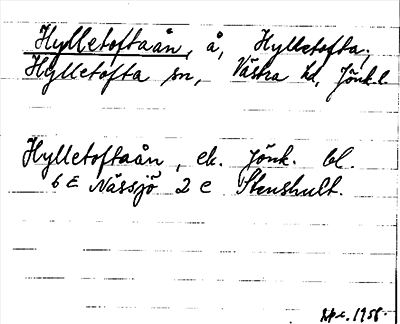 Hylletoftaån, å, Hylletofta,
Hylletofta sn, Västra hd, Jönk. l
Hylletoftaån, ek. Jönk. bl.
6 E Nässjö 2 e Stenshult.
1958.